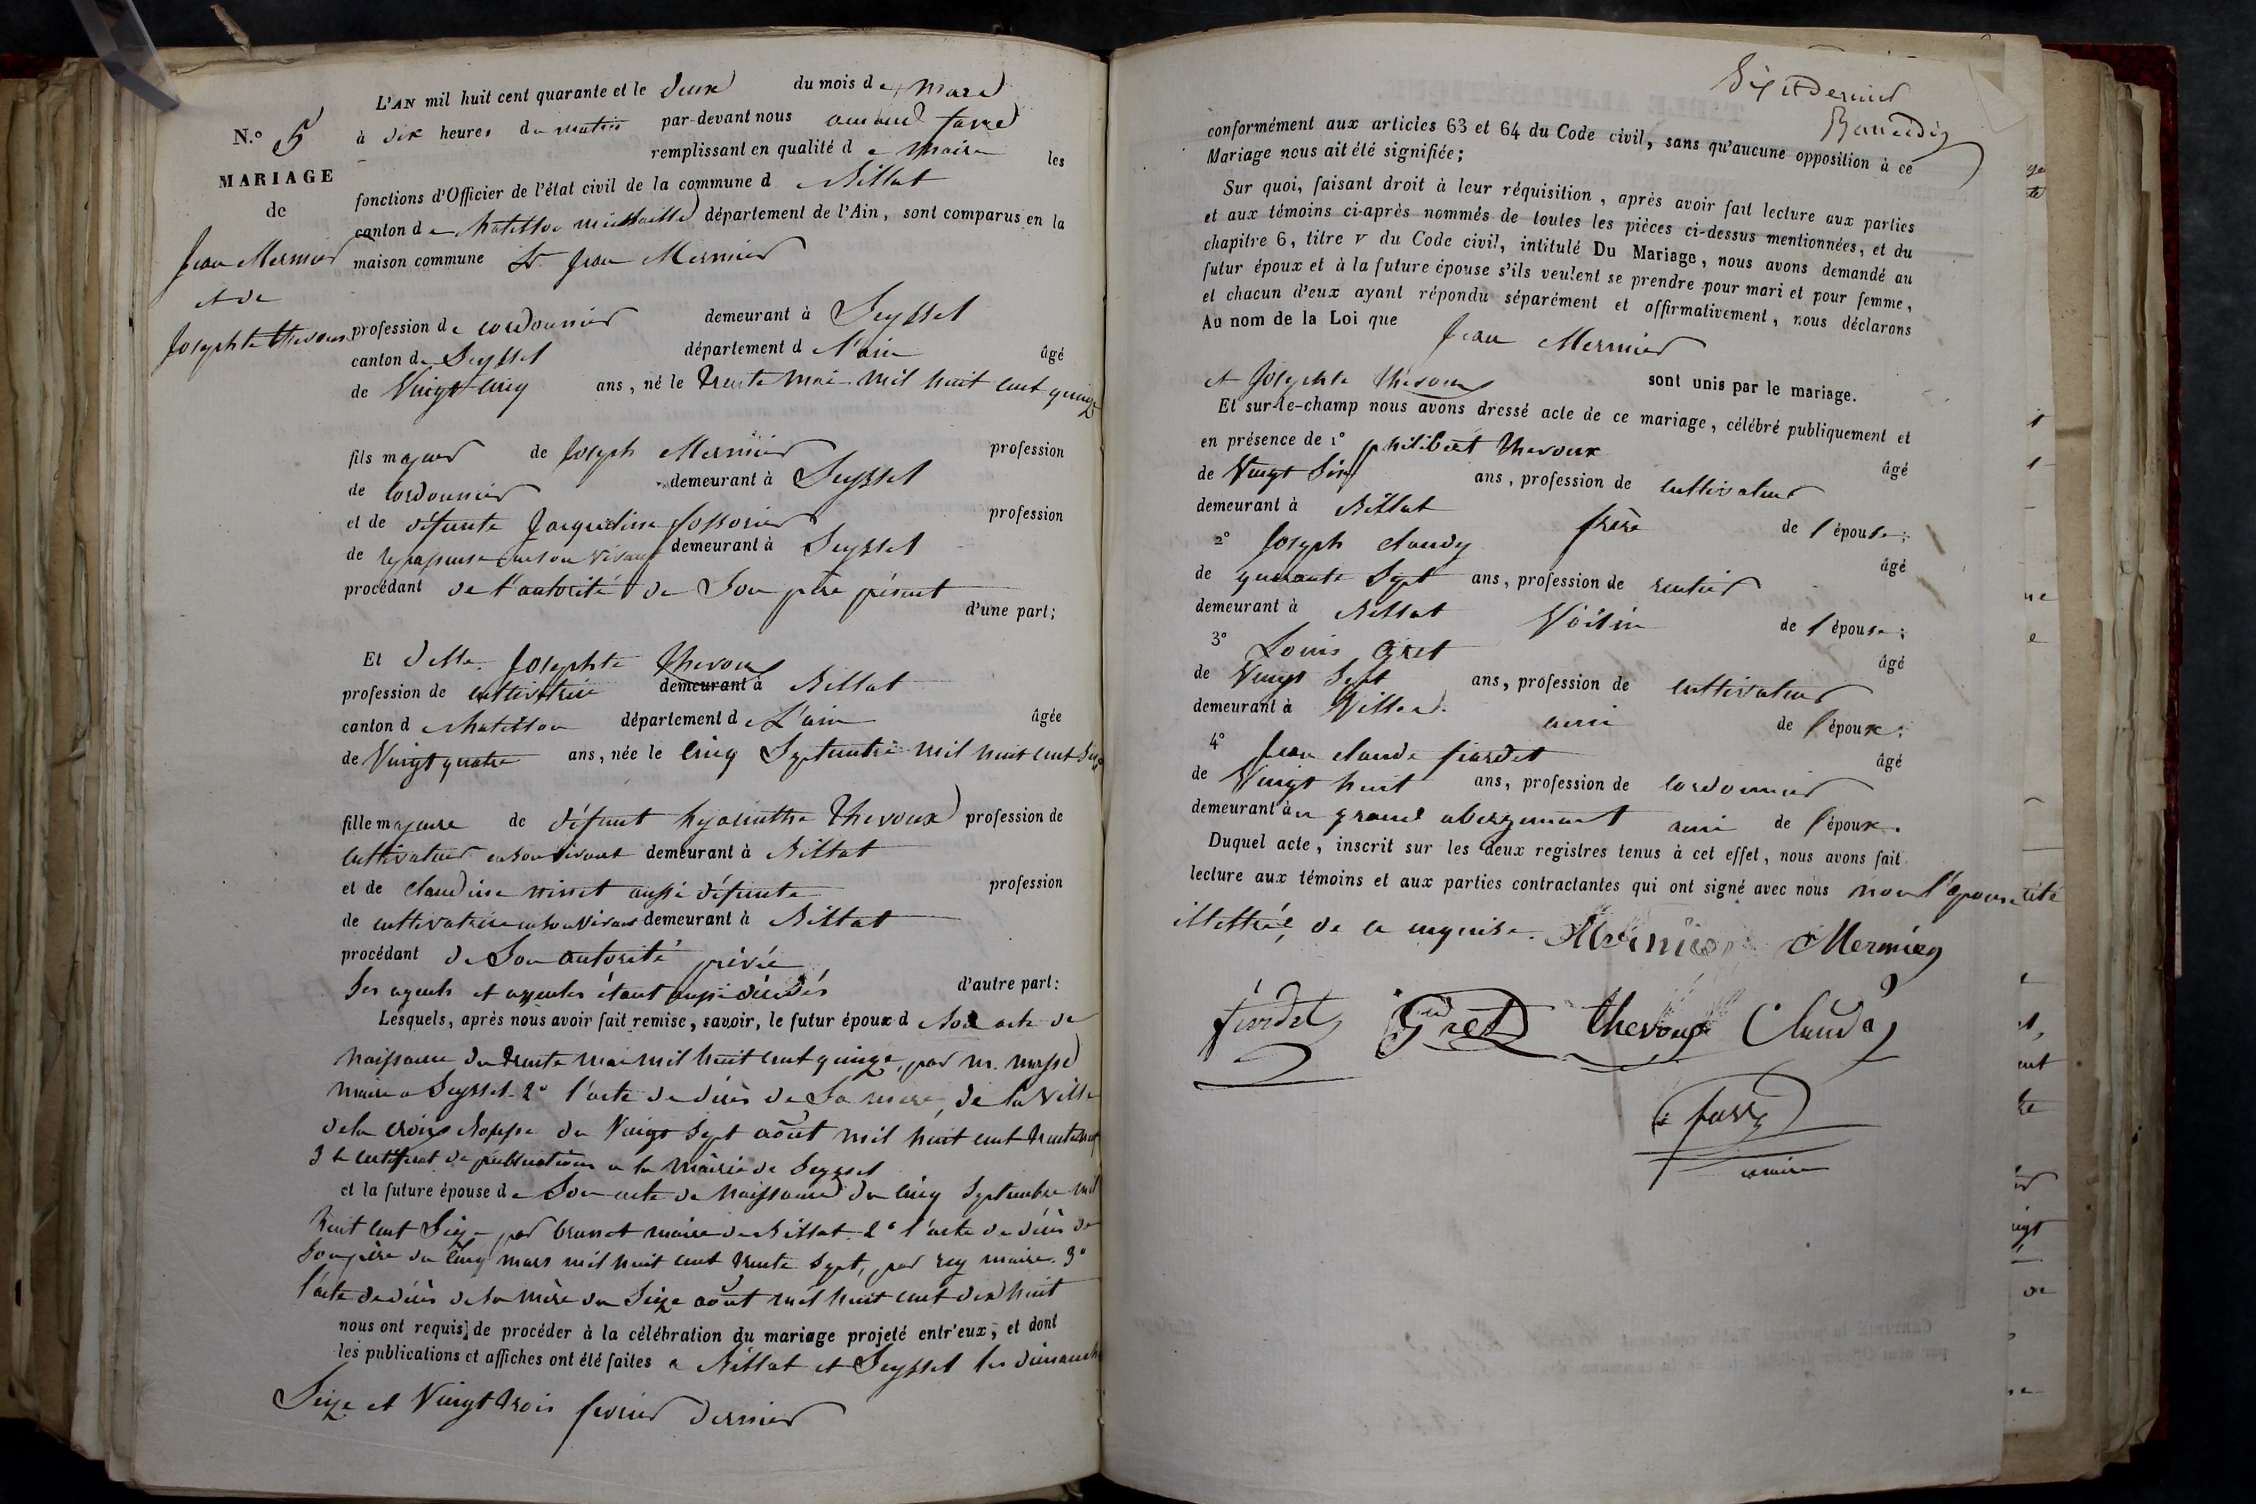 N.º 5
MARIAGE
de
Jean Mermier
et de
Josephte thevoux
L'AN mil huit cent quarante et le deux du mois de mars
à dix heures du matin par-devant nous amand favre
remplissant en qualité de maire les
fonctions d'Officier de l'état civil de la commune d Billiat
canton de chatillon michaille département de l'Ain, sont comparus en la
maison commune Sr. Jean Mermier
profession de cordonnier demeurant à Seyssel
canton de Seyssel département d l'ain âgé
de Vingt cinq ans, né le trente mai mil huit cent quinze
fils majeur de Joseph Mermier profession
de cordonnier demeurant à Seyssel
et de défunte Jacqueline profession
de repasseuse en son vivant demeurant à Seyssel
procédant de l'autorité de Son père présent
d'une part;
Et delle. Josephte thevoux
profession de cultivatrice demeurant à Billiat
canton d chatillon département de L'ain âgée
de Vingt quatre ans, née le cinq Septembre mil huit cent Seize
fille majeure de défunt hyacinthe thevoux profession de
cultivateur en son vivant demeurant à Billiat
et de claudine ninet aussi défunte profession
de cultivatrice en son vivant demeurant à Billiat
procédant de Son autorité privée
Ses ayeuls et ayeules étant aussi décédés d'autre part:
Lesquels, après nous avoir fait remise, savoir, le futur époux d Son acte de
naissance du trente mai mil huit cent quinze, par m. masse
maire a Seyssel. 2° l'acte de décès de Sa mère, de la Ville
de la croix Rousse du Vingt Sept août mil huit cent trente
3 le certificat de publications a la Mairie de Seyssel
et la future épouse de Son acte de naissance du cinq Septembre mil
huit cent Seize par brunet maire de Billiat. 2° l'acte de décès de
Son père du cinq mars mil huit cent trente Sept, par rey maire. 3°
l'acte de décès de Sa mère du Seize août mil huit cent dix huit
nous ont requis de procéder à la célébration du mariage projeté entr'eux, et dont
les publications et affiches ont été faites a Billiat et Seyssel les dimanches
Seize et Vingt trois fevrier dernier
Dix et Dernier
conformément aux articles 63 et 64 du Code civil, sans qu'aucune opposition à ce
Mariage nous ait été signifiée;
Sur quoi, faisant droit à leur réquisition, après avoir fait lecture aux parties
et aux témoins ci-après nommés de toutes les pièces ci-dessus mentionnées, et du
chapitre 6, titre v du Code civil, intitulé Du Mariage, nous avons demandé au
futur époux et à la future épouse s'ils veulent se prendre pour mari et pour femme,
et chacun d'eux ayant répondu séparément et affirmativement, nous déclarons
Au nom de la Loi que Jean Mermier
et Josephte thevoux sont unis par le mariage.
Et sur-le-champ nous avons dressé acte de ce mariage, célébré publiquement et
en présence de 1° philibert thevoux âgé
de Vingt Six ans, profession de cultivateur
demeurant à Billiat frère de l'épouse;
2° Joseph claudy âgé
de quarante Sept ans, profession de rentier
demeurant à Billiat Voisin de l'épouse;
3° Louis Gret âgé
de Vingt Sept ans, profession de cultivateur
demeurant à Villes. ami de l'époux;
4° Jean claude fiardet âgé
de Vingt huit ans, profession de cordonnier
demeurant au grand abergement ami de l'époux.
Duquel acte, inscrit sur les deux registres tenus à cet effet, nous avons fait
lecture aux témoins et aux parties contractantes qui ont signé avec nous non l'épouse
illettrée de ce enquise. Mermier Mermier
fiardet Gret thevoux Clauday
favre
maire